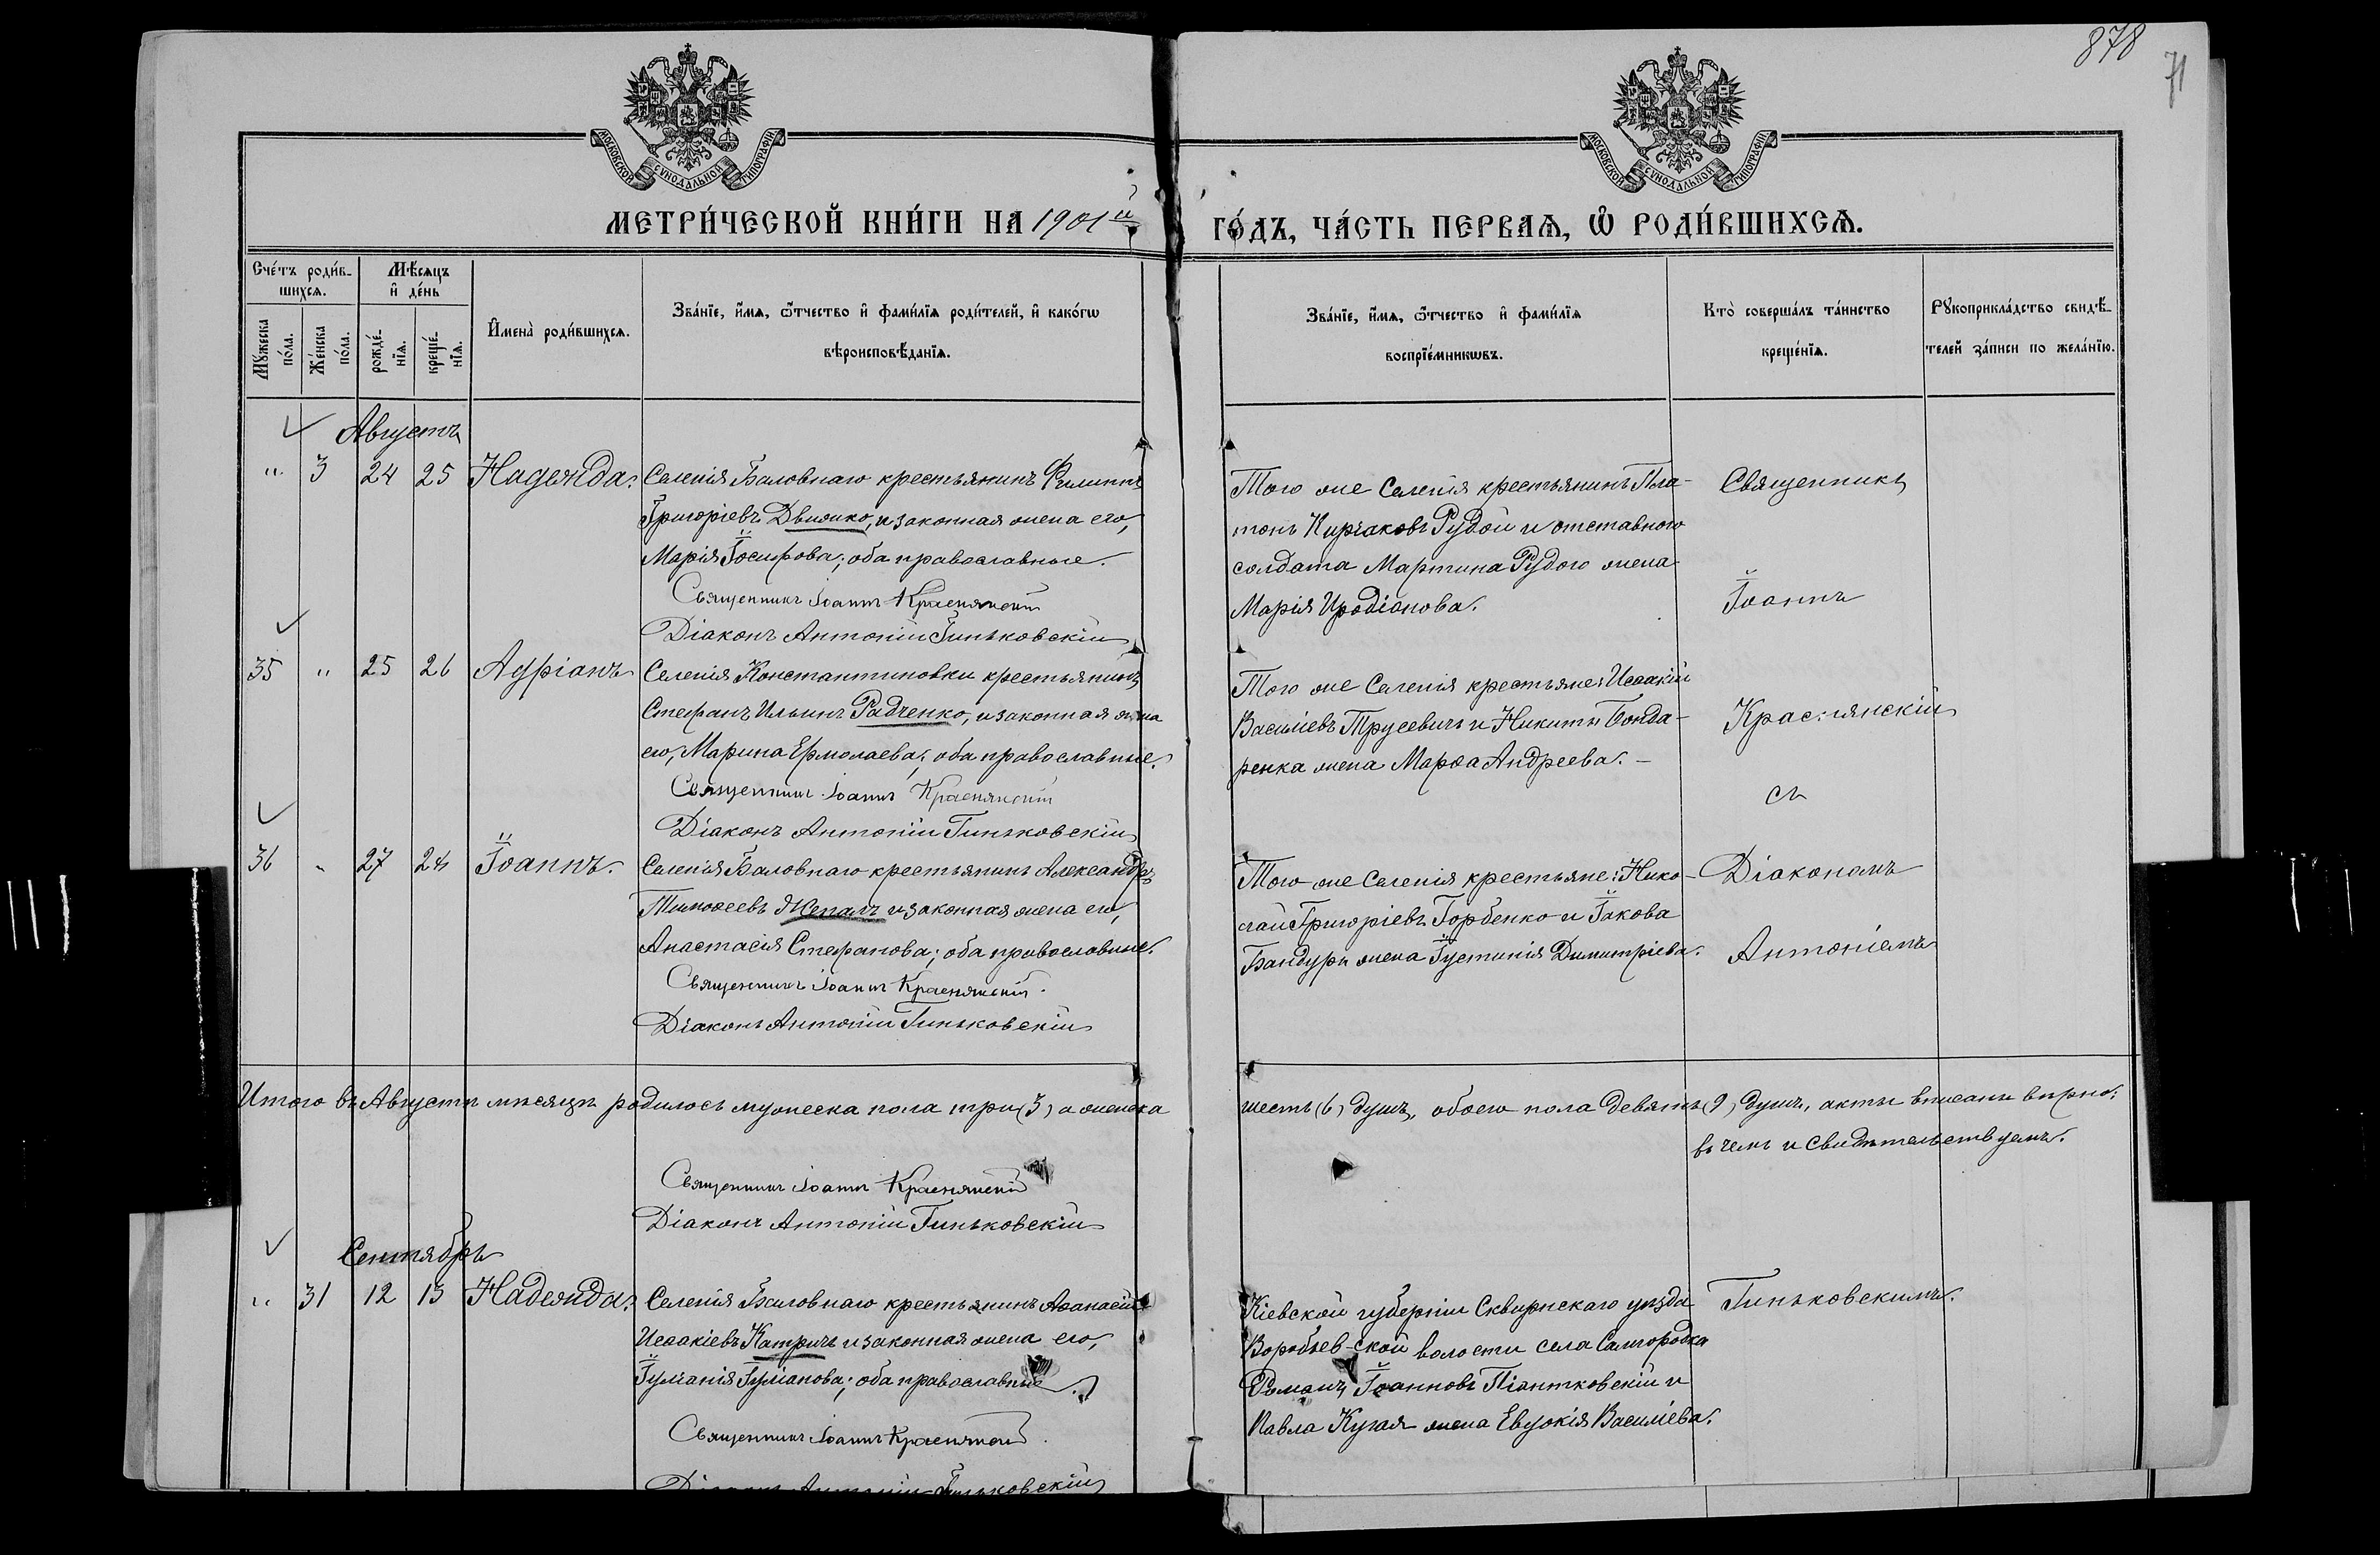 878
71
МОСКОВСКОЙ СѴНОДАЛЬНОЙ ТИПОГРАФІИ
МОСКОВСКОЙ СѴНОДАЛЬНОЙ ТИПОГРАФІИ
МЕТРИ́ЧЕСКОЙ КНИ́ГИ НА 1901й ГО́ДЪ, ЧА́СТЬ ПЕРВАѦ, Ѽ РОДИ́ВШИХСѦ.
Сче́тъ роди́в-
шихсѧ.
Мѣ́сѧцъ
и҆ де́нь
Мꙋ́жеска
по́ла.
Же́нска
по́ла.
рожде́-
нїѧ.
креще́-
нїѧ.
И҆мена̀ роди́вшихсѧ.
Зва́нїе, и҆́мѧ, ѻ҆́тчество и҆ фами́лїѧ роди́телей, и҆ како́гѡ
вѣроисповѣ́данїѧ.
Зва́нїе, и҆́мѧ, ѻ҆́тчество и҆ фами́лїѧ
воспрїе́мникѡвъ.
Кто̀ соверша́лъ та́инство
креще́нїѧ.
Рꙋкоприкла́дство свидѣ́-
телей за́писи по жела́нїю.
Августъ
" 3 24 25 Надежда.
Селенія Баловнаго крестьянинъ Филиппъ
Григоріевъ Движко, и законная жена его,
Марія Іосифова; оба православные.
Священникъ Іоаннъ Краснянскій
Діаконъ Антоній Гиньковскій
Того же Селенія крестьянинъ Пла-
тонъ Киріаковъ Рудой и отставного
солдата Мартина Рудого жена
Марія Иродіонова.
Священникъ
Іоаннъ
35 " 25 26 Адріанъ
Селенія Константиновки крестьянинъ
Стефанъ Ильинъ Радченко, и законная жена
его, Марина Ермолаева; оба православные.
Священникъ Іоаннъ Краснянскій
Діаконъ Антоній Гиньковскій
Того же Селенія крестьяне: Исаакій
Василіевъ Трусевичъ и Никиты Бонда-
ренка жена Марѳа Андреева. -
Краснянскій
съ
36 " 27 28 Іоаннъ.
Селенія Баловнаго крестьянинъ Александръ
Тимоѳеевъ Жепалъ и законная жена его,
Анастасія Стефанова; оба православные.
Священникъ Іоаннъ Краснянскій.
Діаконъ Антоній Гиньковскій
Того же Селенія крестьяне: Нико-
лай Григоріевъ Горбенко и Іакова
Бандуры жена Іустинія Димитріева.
Діакономъ
Антоніемъ
Итого въ Августѣ мѣсяцѣ родилось мужеска пола три (3) а женска шесть (6) душъ, обоего пола девять (9) душъ, акты вписаны вѣрно;
въ чемъ и свидѣтельствуемъ.
Священникъ Іоаннъ Краснянскій
Діаконъ Антоній Гиньковскій
Сентябрь
" 31 12 13 Надежда.
Селенія Баловнаго крестьянинъ Аѳанасій
Исаакіевъ Катричъ и законная жена его,
Іуліанія Іуліанова; оба православные.
Священникъ Іоаннъ Краснянскій.
Діаконъ Антоній Гиньковскій
Кіевской губерніи Сквирскаго уѣзда
Воробьев-ской волости села Самгородка
Романъ Іоанновъ Піантковскій и
Павла Кугая жена Евдокія Василіева.
Гиньковскимъ.